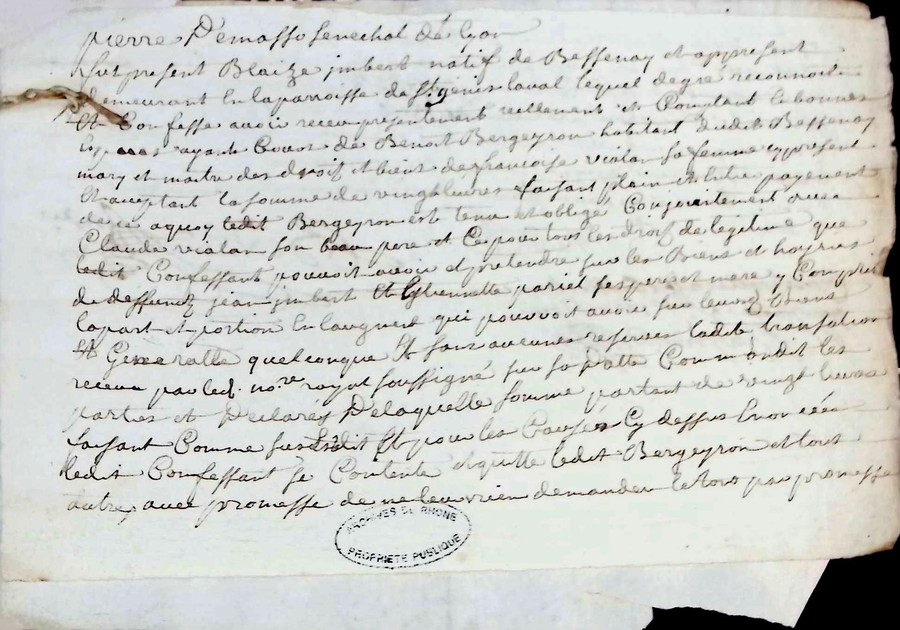 pierre Demasso senechal de lyon
fut present Blaize jmbert natif de Bessenay et appresent
demeurant en laparroisse de St genis laval lequel de gre reconnoit
et Confesse avoir receu presentement reellement et Comptant
ayant Cours de Benoit Bergeyron habitant dudit Bessenay
mary et maitre des droits et biens de francoise vialan sa femme cy present
et acceptant la somme de vingt livres faisant plain et entier payement
de a quoy ledit Bergeyron est tenu et obligé Conjointement avec
Claude vialan son beau pere et Ce pour tous les droits de legitime que
ledit Confessant pouvoit avoir et pretendre sur les Biens et hoyries
de deffunctz jean jmbert et pariel ses pere et mere y Compris
lapart et portion en laugment qui pouvoit avoir sur leurs Biens
et Generalle quelconque Et sans aucunes reserves ladite
receue par led. no.re royal soussigné sur sa datte Comme ont dit les
parties et declarés Delaquelle somme partant de vingt livres
faisant Comme sus est dit Et pour les Causes Cy dessus Enoncées
ledit Confessant se Contente et quitte ledit Bergeyron et tous
autres avec promesse de ne leur rien demander le tout par promesse
ARCHIVES DU RHONE
PROPRIETE PUBLIQUE